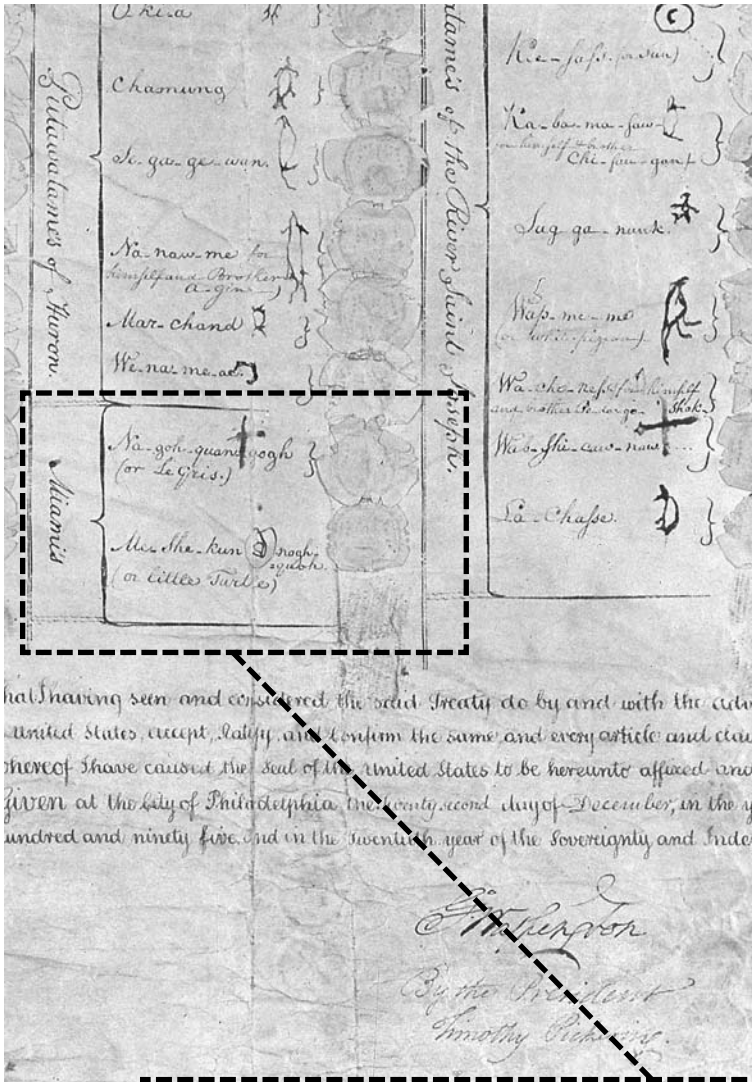 Putawatame's of Huron.
Okia
Chamung
Se-ga-ge-wan.
Na-naw-me for
himself and Brother
A-gin
Mar-chand
We-na-me-ac
Miamis
Na-goh-quangogh
(or Le Gris.)
Me-She-kun nogh-
quoh.
(or little Turtle)
atame's of the River Saint Joseph.
Ka-ba-ma-saw
for himself & brother
Chi-sau-gan
Sug-ga-nunk.
Wap-me-me
(or white pigeon)
Wa-che-ness for himself
and brother Pe-dar-go-Shak-
Wab-Shi-caw-naw
La-Chasse.
hat I having seen and considered the said Treaty do by and with the advi
United States, accept, Ratify, and Confirm the same, and every article and clau
whereof I have caused the Seal of the United States to be hereunto affixed and
Given at the City of Philadelphia the twenty second day of December, in the y
undred and ninety five, and in the Twentieth year of the Sovereignty and Inde
G. Washington
By the President
Timothy Pickering.